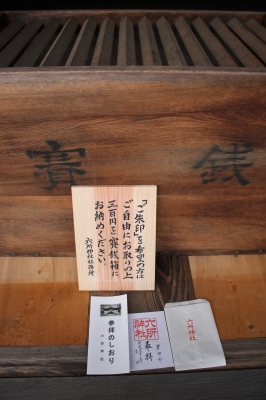 賽銭
「ご朱印」を希望の方は
ご自由にお取りの上
三百円を賽銭箱に
お納めください
六所神社社務所
参拝のしおり
六所神社
奉拝
六所神社